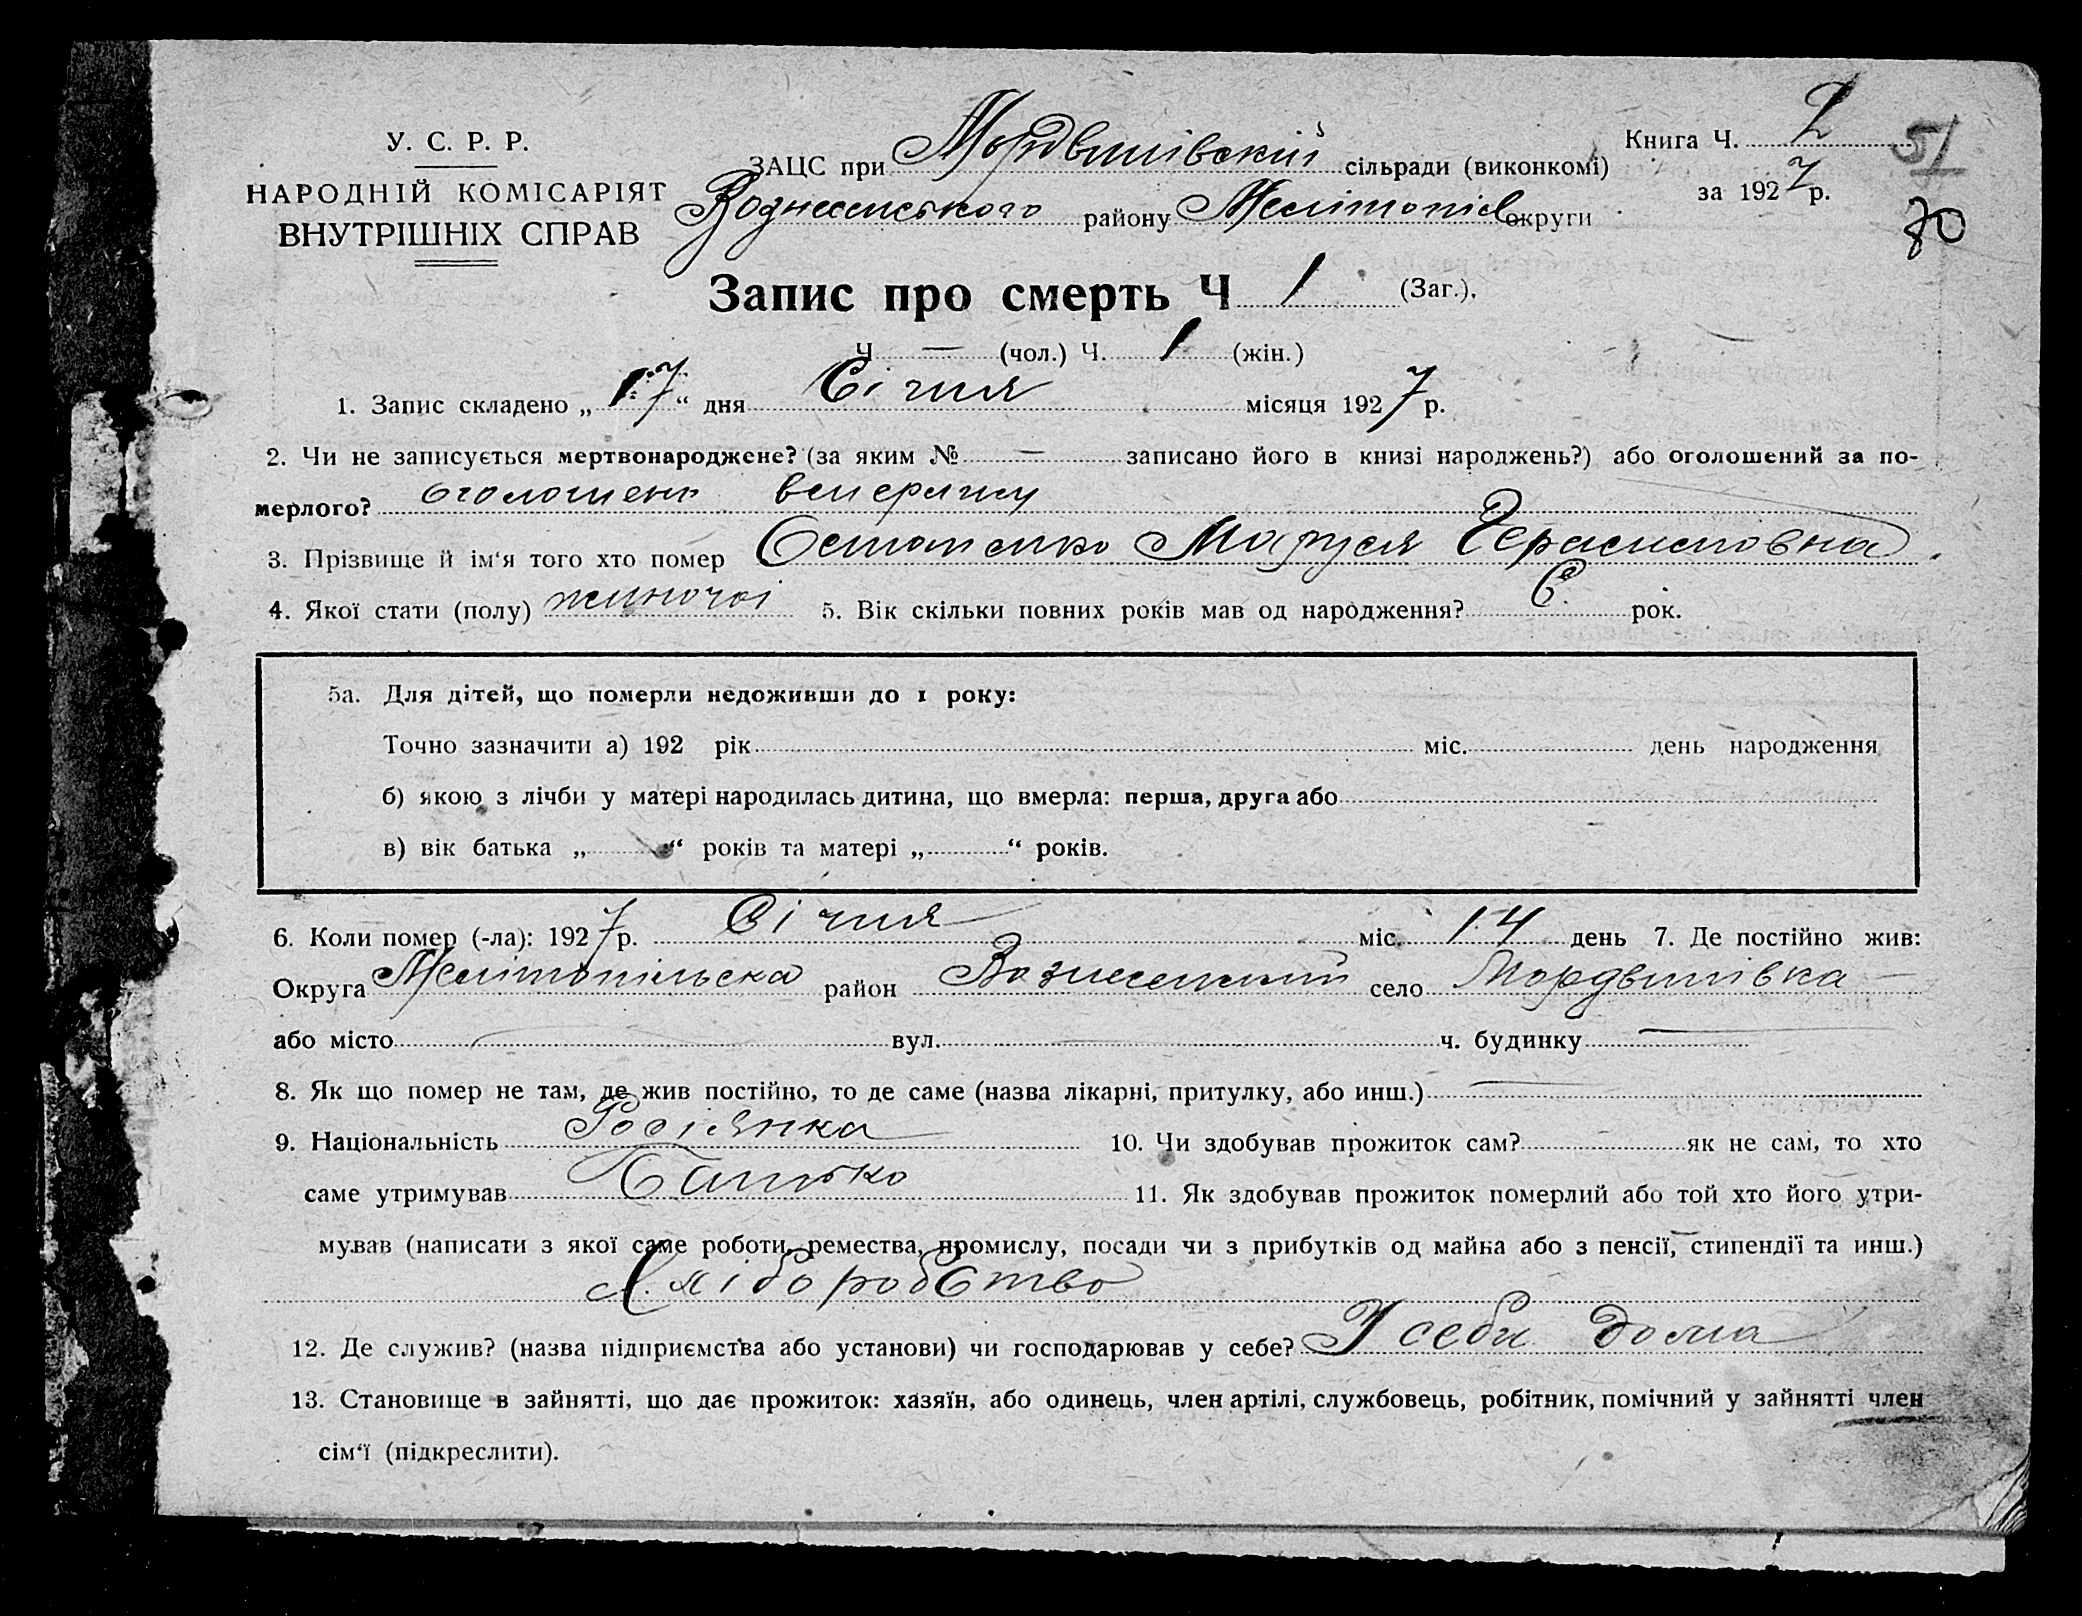 У. С. Р. Р.
НАРОДНІЙ КОМІСАРІЯТ
ВНУТРІШНІХ СПРАВ
Книга Ч. 2
51
за 1927 р.
70
ЗАЦС при Мордвинівскій сільради (виконкомі)
Вознесенського району Мелітопіл округи
Запис про смерть Ч 1 (Заг.),
Ч — (чол.) Ч. 1 (жін.)
1. Запис складено „ 17 “ дня Січня місяця 1927 р.
2. Чи не записується мертвонароджене? (за яким № — записано його в книзі народжень?) або оголошений за по-
мерлого? оголошень
3. Прізвище й ім‘я того хто помер Остапенко Маруся Герасимовна.
4. Якої стати (полу) жиночоі 5. Вік скільки повних років мав од народження? 6. рок.
5а. Для дітей, що померли недоживши до 1 року:
Точно зазначити а) 192 рік міс. день народження
б) якою з лічби у матері народилась дитина, що вмерла: перша, друга або
в) вік батька „ “ років та матері „ “ років.
6. Коли помер (-ла): 1927 р. Січня міс. 14 день 7. Де постійно жив:
Округа Мелітопільска район Вознесенский село Мордвинівка
або місто — вул. — ч. будинку —
8. Як що помер не там, де жив постійно, то де саме (назва лікарні, притулку, або инш.) —
9. Національність Росіянка 10. Чи здобував прожиток сам? як не сам, то хто
саме утримував Батько 11. Як здобував прожиток померлий або той хто його утри-
мував (написати з якої саме роботи, ремества, промислу, посади чи з прибутків од майна або з пенсії, стипендії та инш.)
Хліборобство
12. Де служив? (назва підприємства або установи) чи господарював у себе? У себи дома
13. Становище в зайнятті, що дає прожиток: хазяїн, або одинець, член артілі, службовець, робітник, помічний у зайнятті член
сім‘ї (підкреслити).